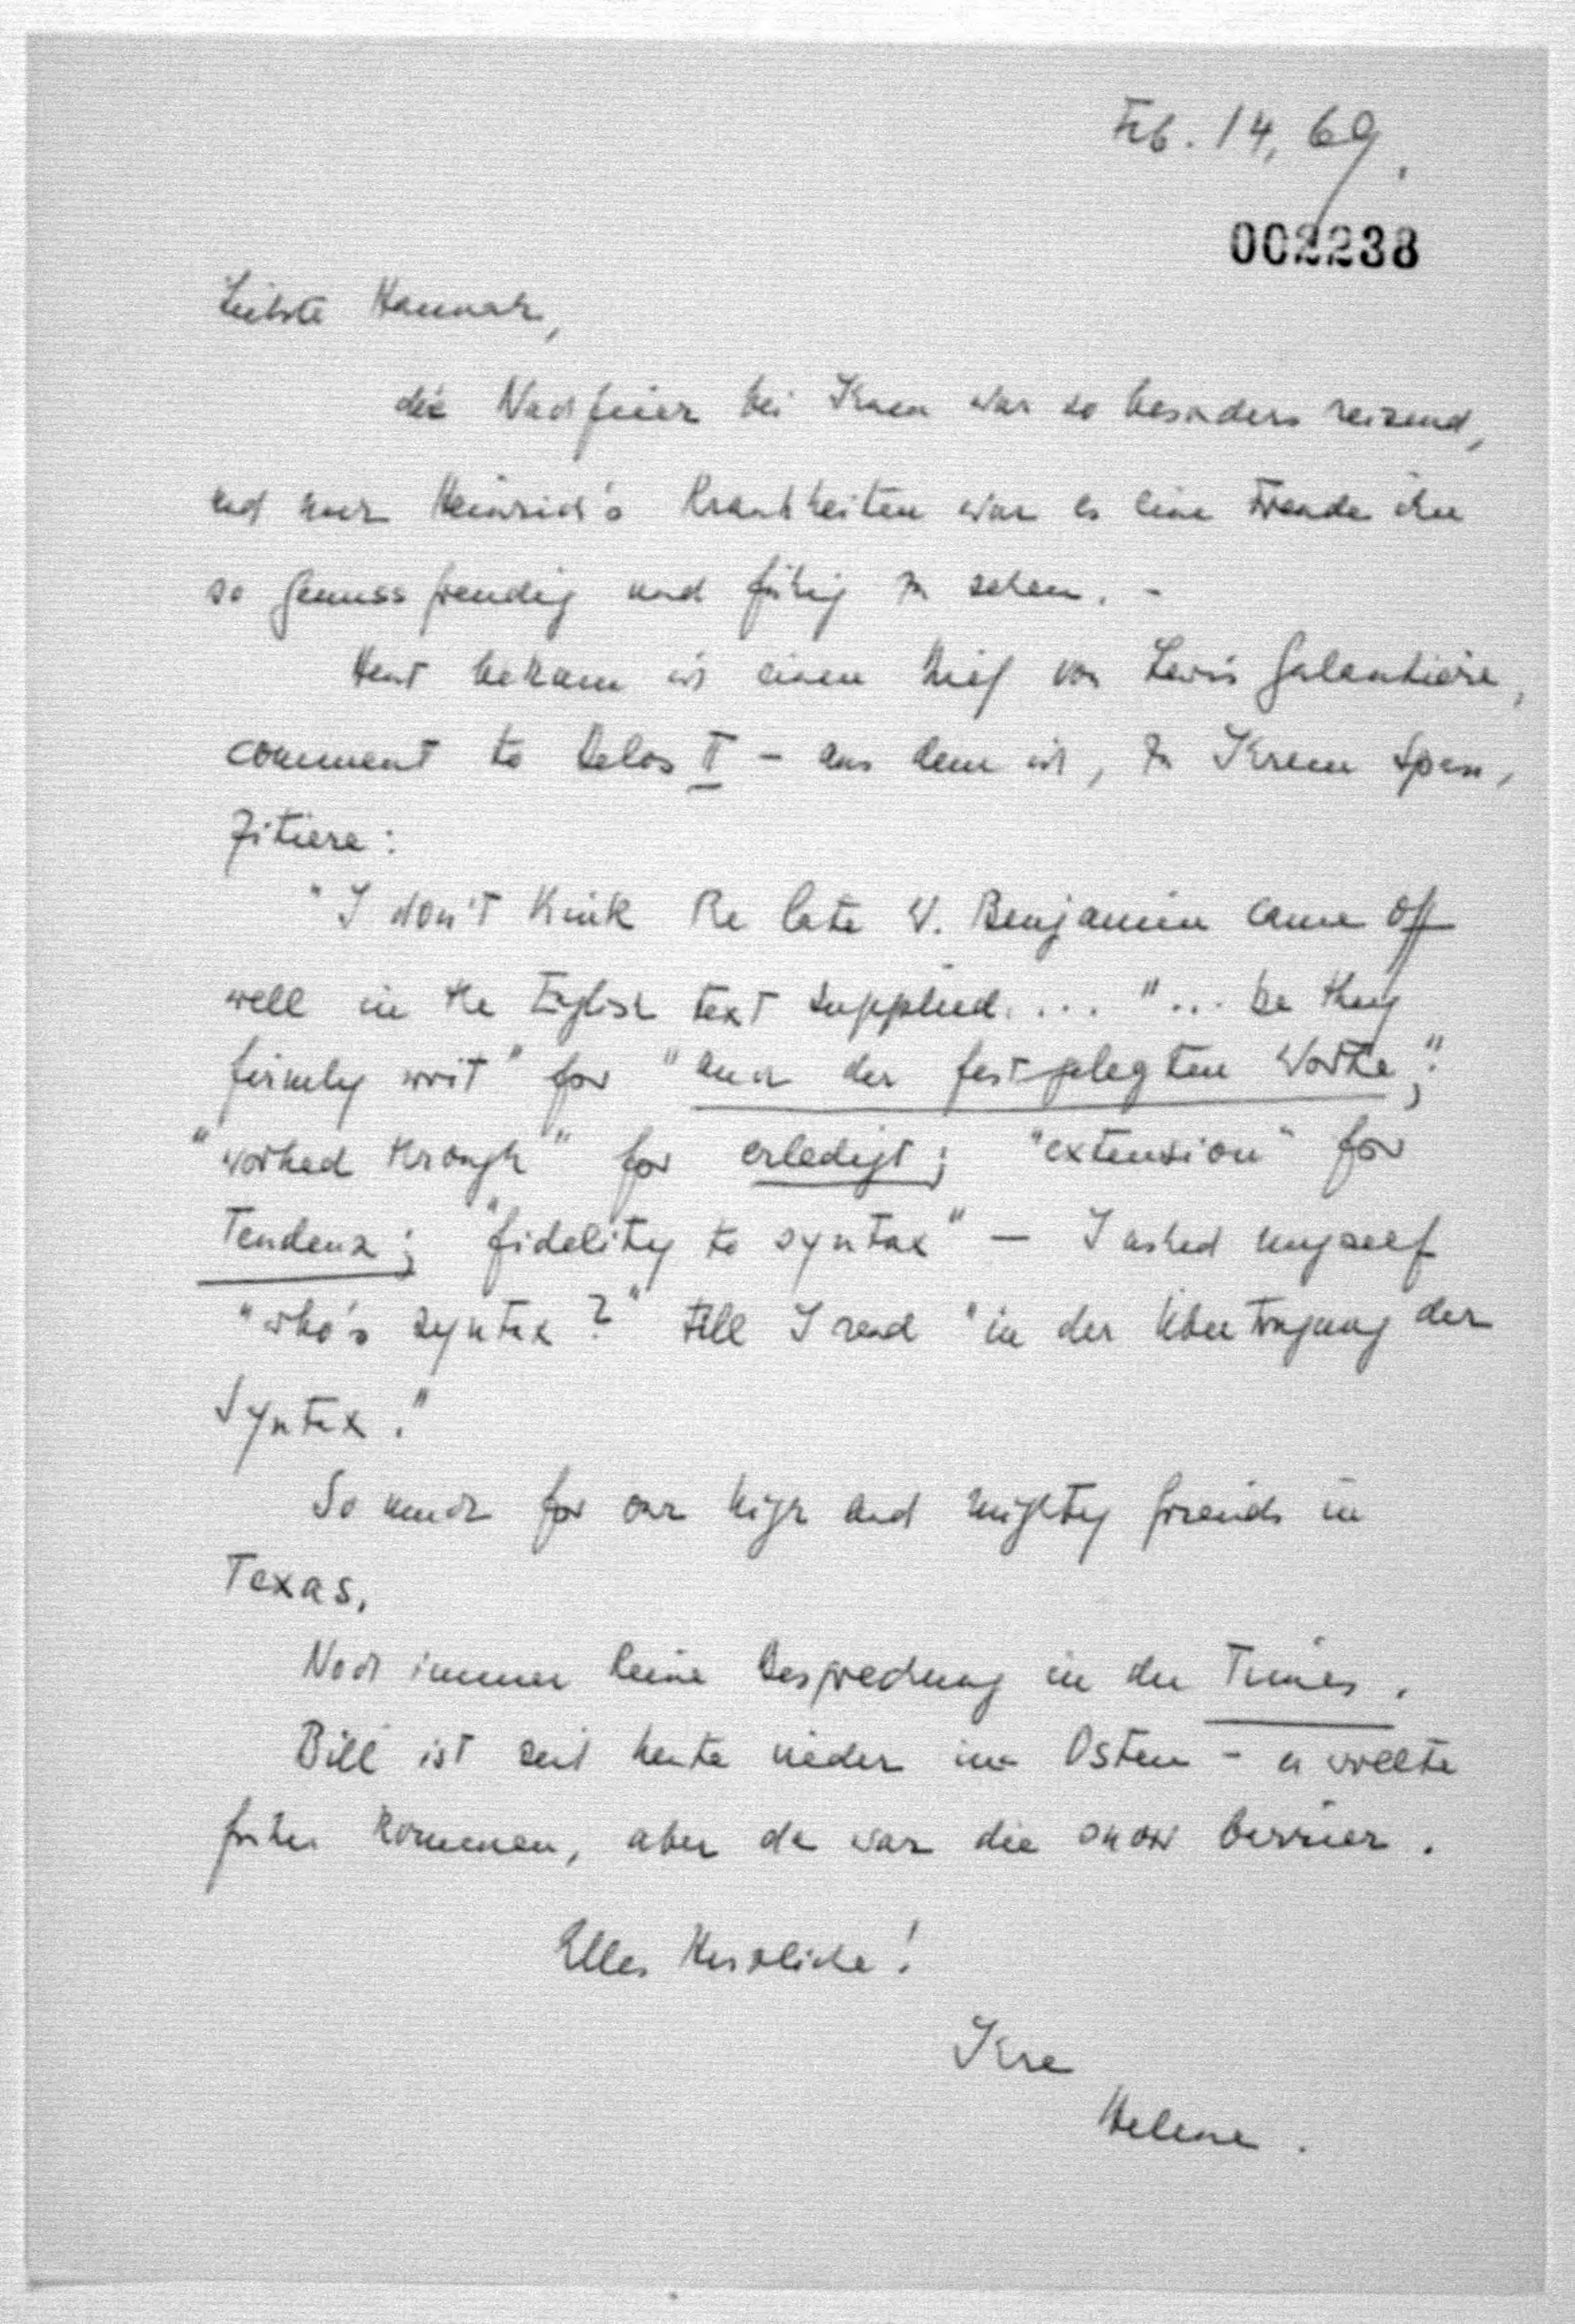 Feb. 14, 69.
002238
Liebste Hannah,
die Nachfeier bei Ihnen war so besonders reizend,
und nach Heinrich's Krankheiten war es eine Freude ihn
so genussfreudig und fähig zu sehen. -
Heut bekam ich einen Brief von Lewis Galantière,
comment to Delos II - aus dem ich, zu Ihrem Spass,
zitiere:
"I don't think the late W. Benjamin came off
well in the English text supplied. ... "... be they
firmly writ" for "auch der festgelegten Worte";
"worked through" for erledigt; "extension" for
Tendenz; "fidelity to syntax" — I asked myself
"who's syntax?" till I read "in der Übertragung der
Syntax."
So much for our high and mighty friends in
Texas.
Noch immer keine Besprechung in der Times.
Bill ist seit heute wieder im Osten - er wollte
früher kommen, aber da war die snow barrier.
Alles Herzliche!
Ihre
Helene.